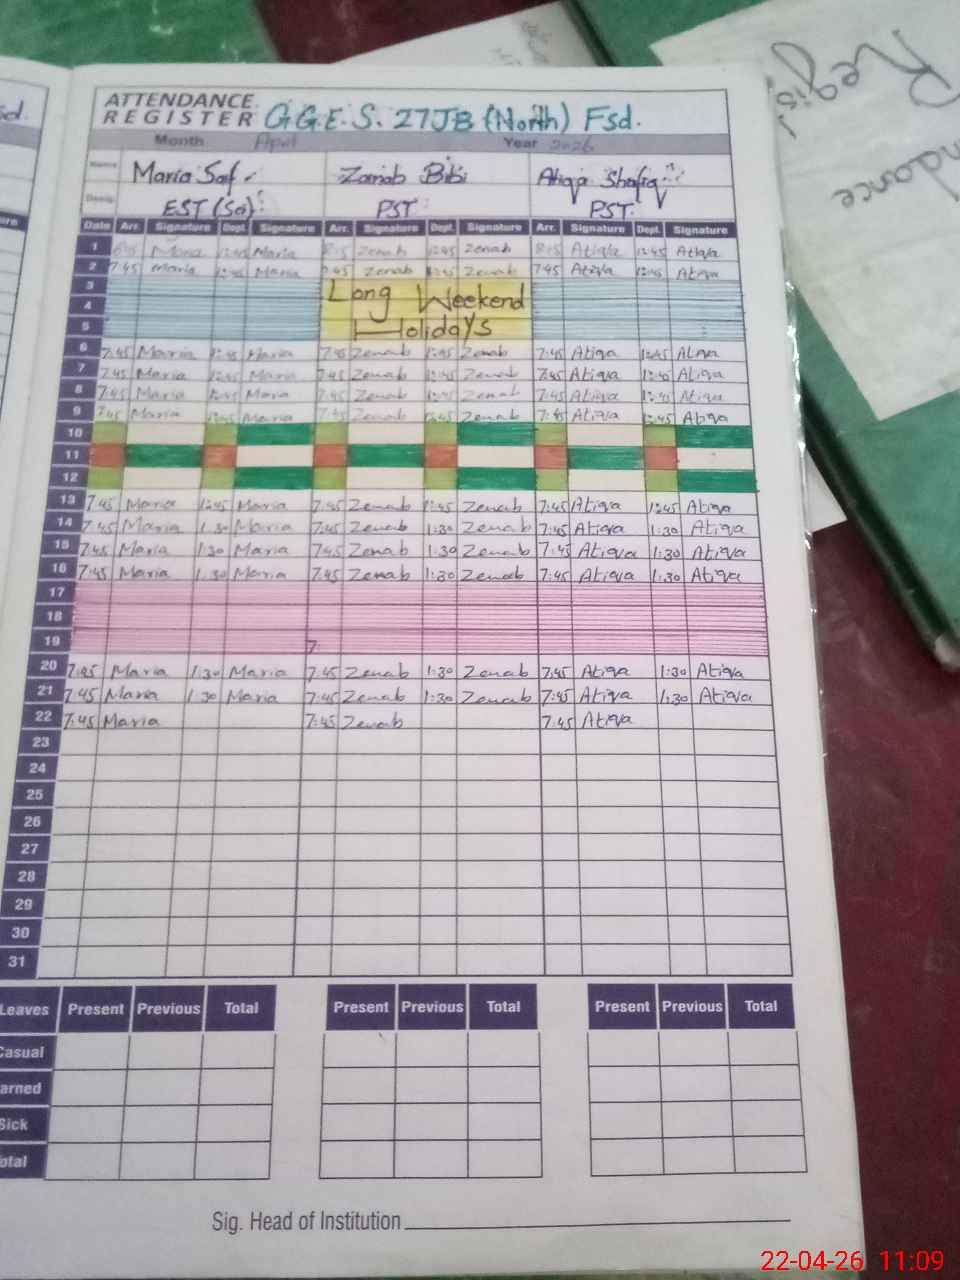 ATTENDANCE
REGISTER G.G.E.S. 27JB (North) Fsd.
Month April Year 2026
Name Maria Saif Zainab Bibi Atiqa Shafiq
Desig. EST (Sci) PST PST
Date Arr. Signature Dept. Signature Arr. Signature Dept. Signature Arr. Signature Dept. Signature
1 8:15 Maria 12:45 Maria 8:15 Zenab 12:45 Zenab 8:15 Atiqa 12:45 Atiqa
2 7:45 Maria 12:45 Maria 7:45 Zenab 12:45 Zenab 7:45 Atiqa 12:45 Atiqa
3 Long Weekend
4
5 Holidays
6 7:45 Maria 12:45 Maria 7:45 Zenab 12:45 Zenab 7:45 Atiqa 12:45 Atiqa
7 7:45 Maria 12:45 Maria 7:45 Zenab 12:45 Zenab 7:45 Atiqa 12:45 Atiqa
8 7:45 Maria 12:45 Maria 7:45 Zenab 12:45 Zenab 7:45 Atiqa 12:45 Atiqa
9 7:45 Maria 12:45 Maria 7:45 Zenab 12:45 Zenab 7:45 Atiqa 12:45 Atiqa
10
11
12
13 7:45 Maria 12:45 Maria 7:45 Zenab 12:45 Zenab 7:45 Atiqa 12:45 Atiqa
14 7:45 Maria 1:30 Maria 7:45 Zenab 1:30 Zenab 7:45 Atiqa 1:30 Atiqa
15 7:45 Maria 1:30 Maria 7:45 Zenab 1:30 Zenab 7:45 Atiqa 1:30 Atiqa
16 7:45 Maria 1:30 Maria 7:45 Zenab 1:30 Zenab 7:45 Atiqa 1:30 Atiqa
17
18
19 7:
20 7:45 Maria 1:30 Maria 7:45 Zenab 1:30 Zenab 7:45 Atiqa 1:30 Atiqa
21 7:45 Maria 1:30 Maria 7:45 Zenab 1:30 Zenab 7:45 Atiqa 1:30 Atiqa
22 7:45 Maria 7:45 Zenab 7:45 Atiqa
23
24
25
26
27
28
29
30
31
Leaves Present Previous Total Present Previous Total Present Previous Total
Casual
arned
Sick
otal
Sig. Head of Institution
22-04-26 11:09